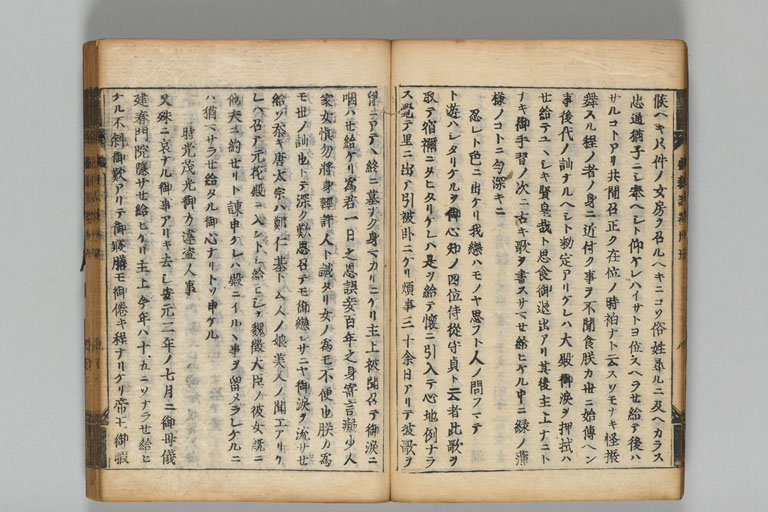 候ヘキ只件ノ女房ヲ召ルヘキニコソ俗姓尋ルニ及ヘカラス
忠通猶子ニシ奉ヘシト仰ケレハイサトヨ位スヘラせ給テ後ハ
サルコトアリ共聞召正ク在位ノ時袙ナト云スソモナキ怪振
舞スル程ノ者ノ身ニ近付ク事ヲ不聞食朕カ世ニ始傳ヘン
事後代ノ訕ナルヘシト勅定アリケレハ大殿御涙ヲ押拭ハ
せ給テユヽシキ賢皇哉ト思食御退出アリ其後主上ナニト
ナキ御手習ノ次ニ古キ歌ヲ書スサマせ給ヒケル中ニ緑ノ薄
様ノコトニ匂深キニ
忍レト色ニ出ケリ我戀ハモノヤ思フト人ノ問フマテ
ト遊ハシタリケルヲ御心知ノ四位侍從守貞ト云者此歌ヲ
取テ宿禰ニタヒタリケレハ是ヲ給テ懐ニ引入テ心地例ナラ
ス覺テ里ニ出テ引被卧ニケリ煩事三十余日アリテ彼歌ヲ
胷ニアテヽ終ニ墓ナク身マカリニケリ主上被聞召テ御涙ニ
咽ハせ給ケリ為君一日之恩誤妾百年之身寄言癡少人
家女慎勿將身輕許人ト誡タリ女ノ為モ不便也朕カ為
モ世ノ訕也トテ深ク歎思召テモ御戀シサニヤ御涙ヲ流サせ
給ソ忝キ唐太宗ハ鄭仁基ト云人ノ娘美人ノ聞エアリケ
レハ召テ元花殿ニ入レントシ給ヒシヲ魏徴大臣ノ彼女既ニ
他夫ニ約せリト諫申ケレハ殿ニイルヽ事ヲ留メラレケルニ
ハ猶マサラせ給タル御心ナリトソ申ケル
時光茂光御方違盗人事
又殊ニ哀ナル御事アリキ去シ安元二年ノ七月ニ御母儀
建春門院隱サせ給ヒケリ主上今年ハ十五ニソナラせ給ヒ
ナル不斜御歎アリテ御寢膳モ御倦キ程ナリケリ帝王御暇